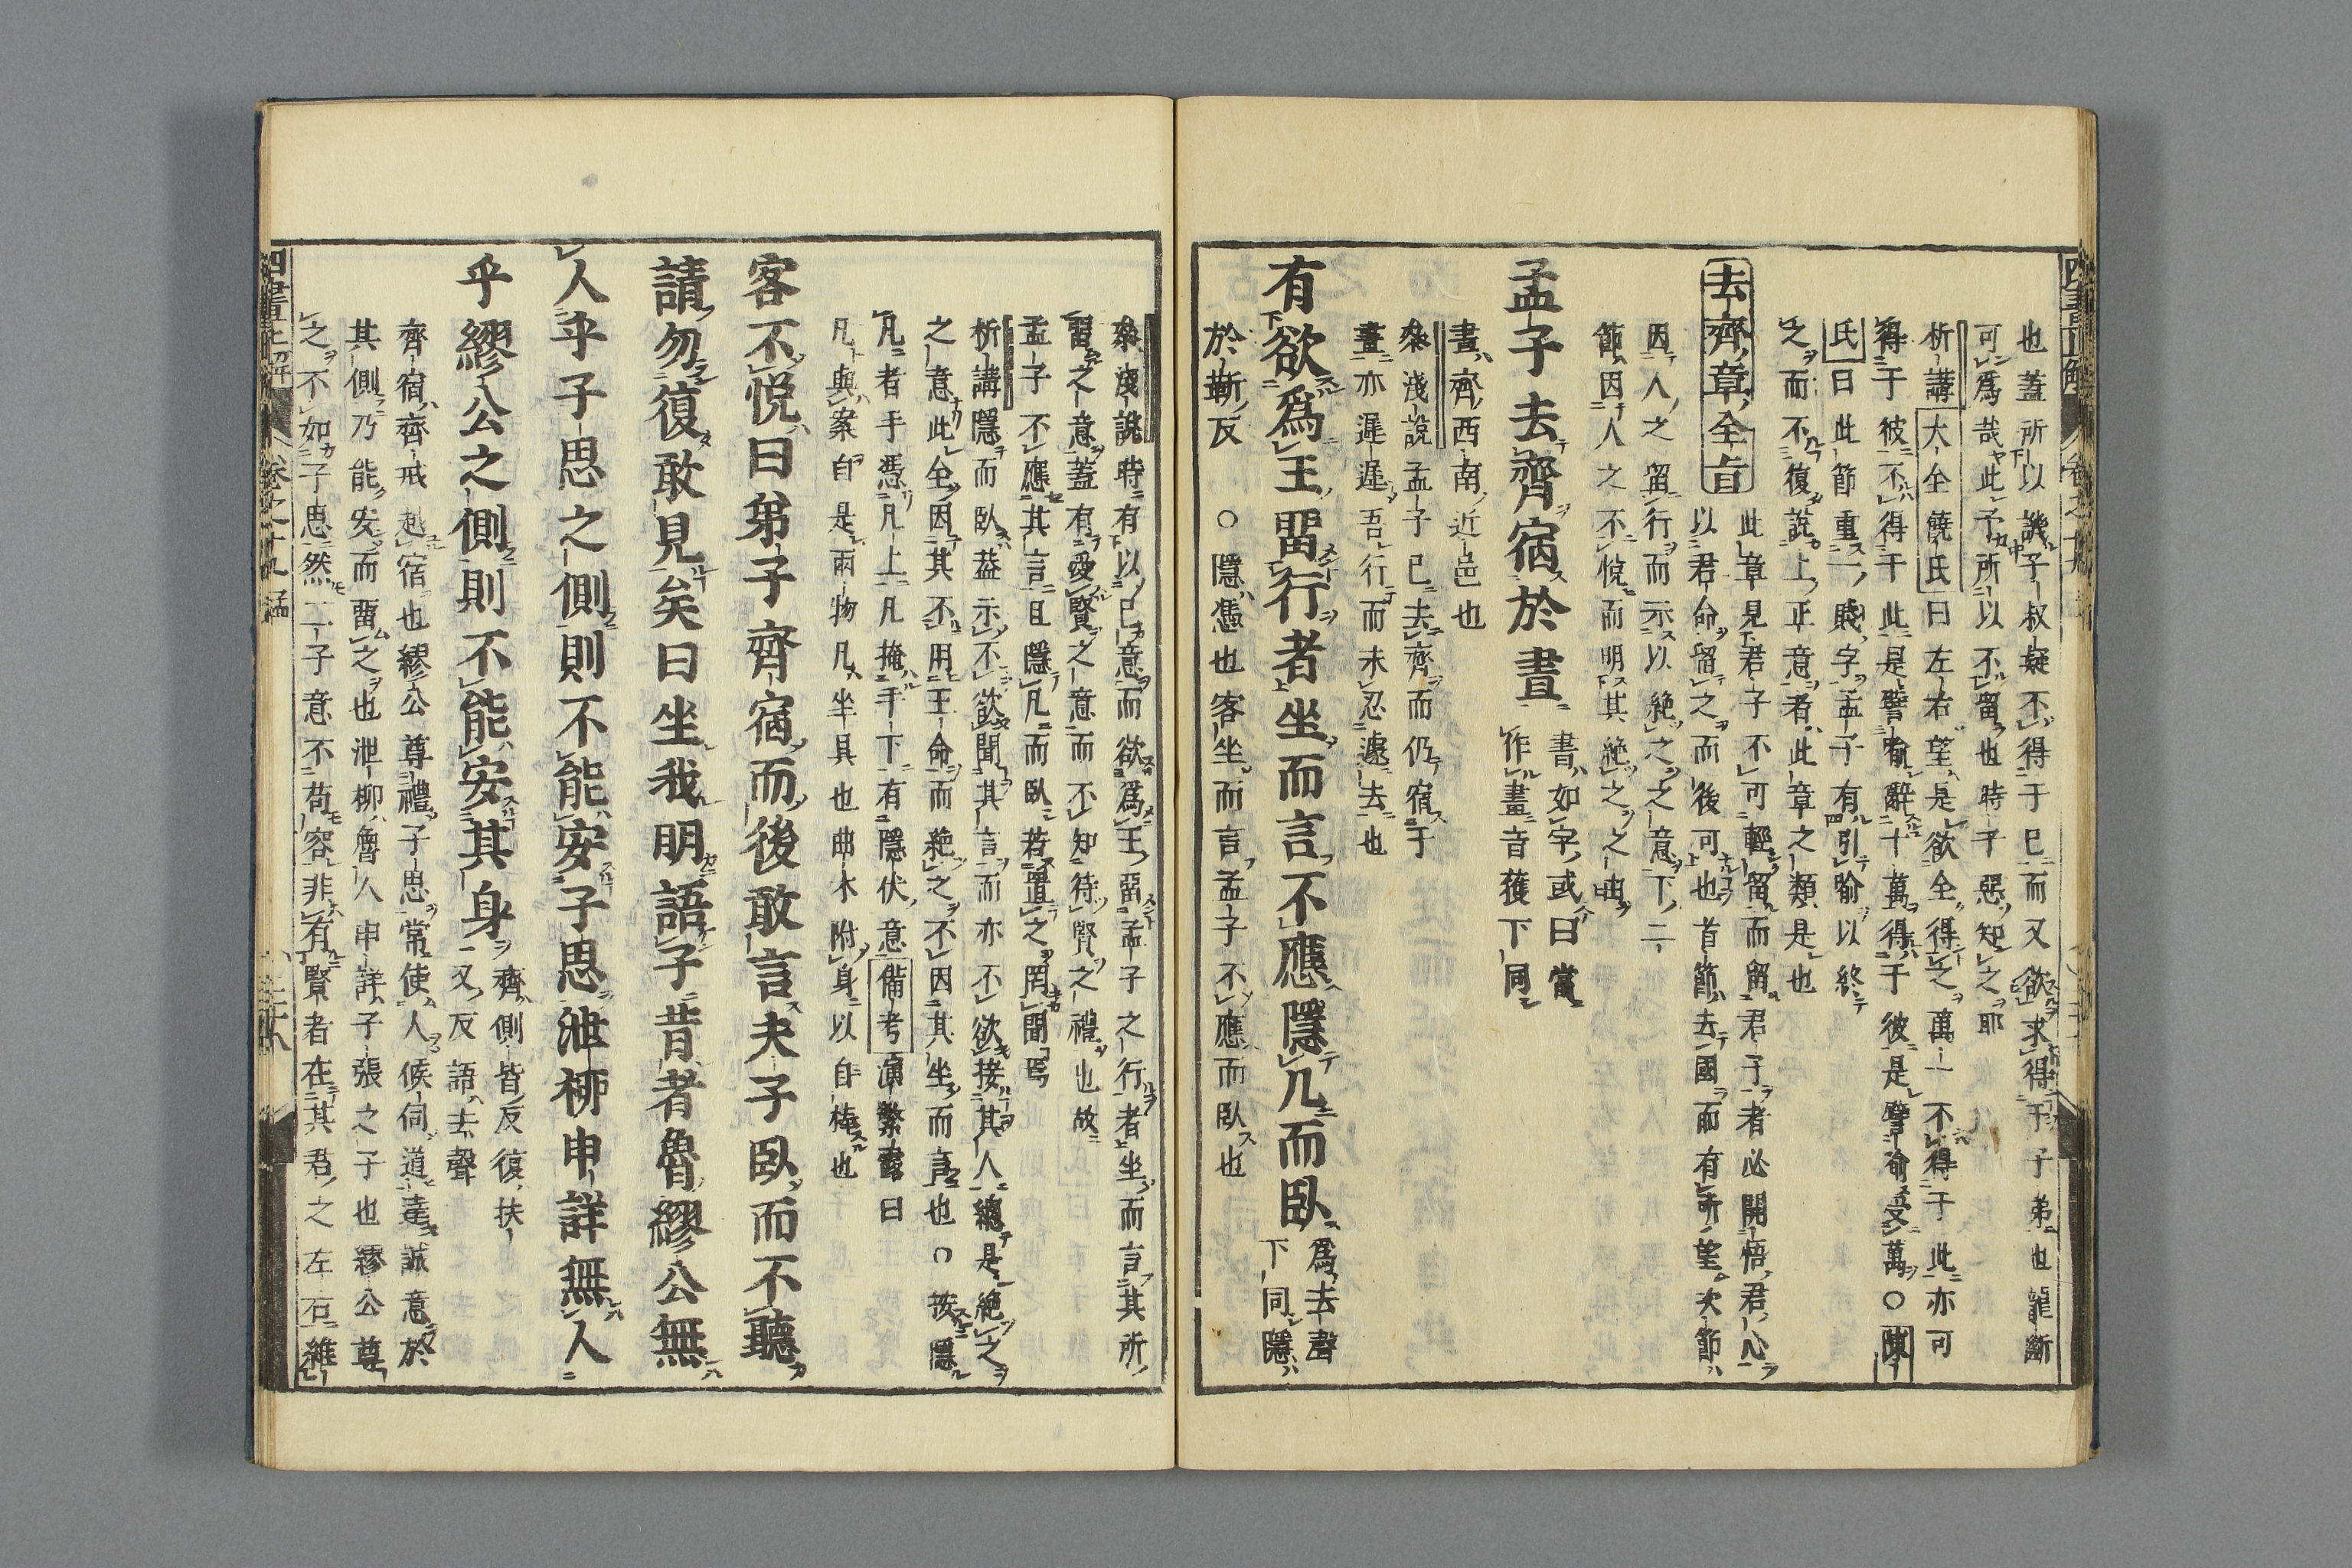 也蓋所以譏子叔疑不得于已而又欲求得于子弟也龍斷
可爲哉此予所以不留也時子惡知之耶
析講大全饒氏曰左右望是欲全得之萬一不得于此亦可
得于彼不得于此是譬喻辭十萬得于彼是譬喻受萬○陳
氏曰此節重一賤字孟子有引喻以終
之而不復說上正意者此章之類是也
去齊章全旨
此章見君子不可輕留而留君子者必開悟君心
以君命留之而後可也首節去國而有所望次節
因人之留行而示以絶之之意下二
節因人之不悅而明其絶之之由
孟子去齊宿於晝
晝如字或曰當
作畫音獲下同
晝齊西南近邑也
叅淺說孟子已去齊而仍宿于
晝亦遲遲吾行而未忍遽去也
有欲爲王留行者坐而言不應隱几而臥
爲去聲
下同隱
於靳反
○隱憑也客坐而言孟子不應而臥也
叅淺說時有以已意而欲爲王留孟子之行者坐而言其所
留之意蓋有愛賢之意而不知待賢之禮也故
孟子不應其言且隱几而臥若置之罔聞焉
析講隱而臥葢示不欲聞其言而亦不欲接其人總是絶之
之意此全因其不用王命而絶之不因其坐而言也○按隱
凡者手憑凡上凡掩手下有隱伏意備考演繁露曰
凡與案自是兩物凡坐具也曲木附身以自檯也
客不悅曰弟子齊宿而後敢言夫子臥而不聽
請勿復敢見矣曰坐我明語子昔者魯繆公無
人乎子思之側則不能安子思泄柳申詳無人
乎繆公之側則不能安其身
齊側皆反復扶
又反語去聲
齊宿齊戒越宿也繆公尊禮子思常使人候伺道達誠意於
其側乃能安而留之也泄柳魯人申詳子張之子也繆公尊
之不如子思然二子意不苟容非有賢者在其君之左右維
四書正解
卷之十九
孟